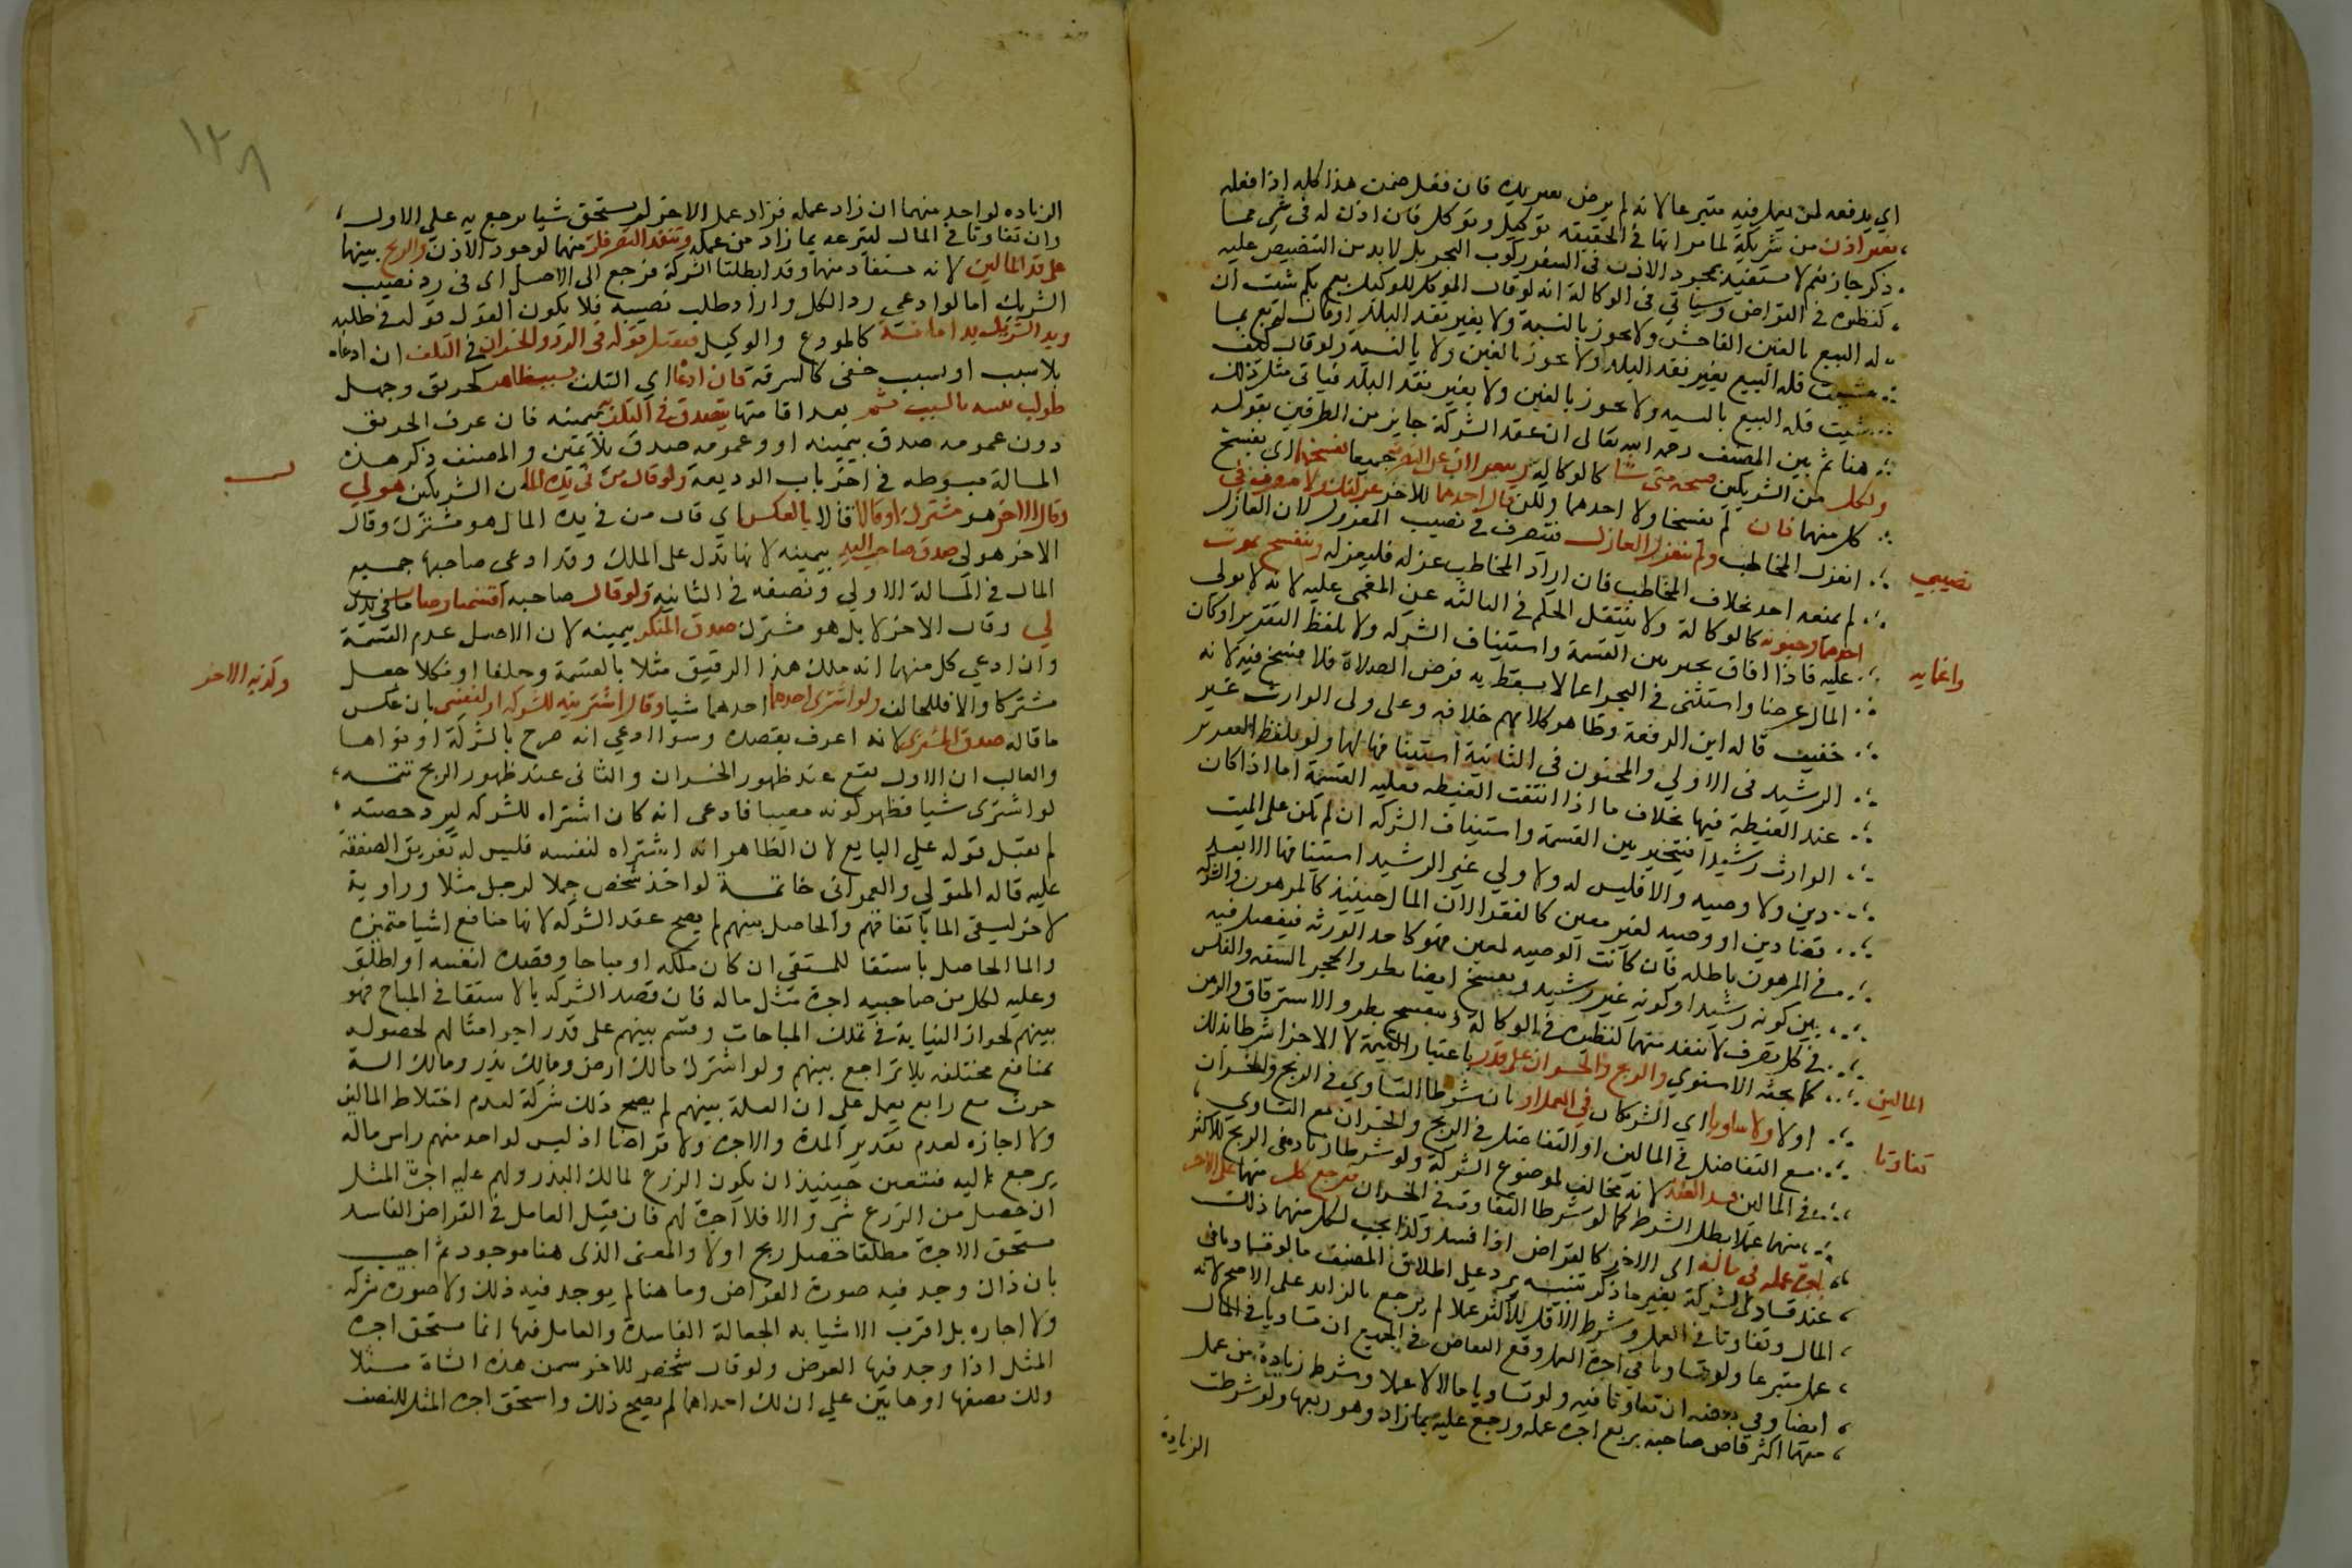 اي يدفعه لمن يعمل فيه متبرعا لانه لم يرض بغير يده فان فعل ضمن هذا كله اذا فعله
بغير اذن من شريكه لما مر انها في الحقيقه توكيل وتوكل فان اذن له في شي مما
ذكر جاز نعم لا يستفيد بمجرد الاذن في السفر ركوب البحر بل لا بد من التنصيص عليه
كنظيره في القراض وسياتي في الوكالة انه لو قال الموكل للوكيل بع بكم شئت ان
له البيع بالغبن الفاحش ولا يجوز بالنسية ولا بغير نقد البلد او قال له بع بما
شيت فله البيع بغير نقد البلد ولا يجوز بالغبن ولا بالنسية ولو قال كيف
شيت فله البيع بالنسيه ولا يجوز بالغبن ولا بغير نقد البلد فياتي مثل ذلك
هنا ثم بين المصنف رحمه الله تعالى ان عقد الشركة جايز من الطرفين بقوله
ولكل من الشريكين فسخه متى شا كالوكالة وينعزلان عن التصرف جميعا بفسخهما اي بفسخ
كل منهما فان لم يفسخا ولا احدهما ولكن قال احدهما للاخر عزلتك او لا تتصرف في
نصيبي
انعزل المخاطب ولم ينعزل العازل فيتصرف في نصيب المعزول لان العازل
لم يمنعه احد بخلاف المخاطب فان اراد المخاطب عزله فليعزله وينفسخ بموت
احدهما وجنونه كالوكالة ولا ينتقل الحكم في الثالثه عن المغمى عليه لانه لا يولى
واغمايه
عليه فاذا افاق تخير بين القسمة واستيناف الشركه ولو بلفظ التقرير او كان
المال عرضا واستثنى في البحر اغما لا يسقط به فرض الصلاة فلا فسخ فيه لانه
خفيف قاله ابن الرفعة وظاهر كلامهم خلافه وعلى ولي الوارث غير
الرشيد في الاولي والمجنون في الثانية استينافها لهما ولو بلفظ التقرير
عند الغبطة فيها بخلاف ما اذا انتفت الغبطه فعليه القسمة اما اذا كان
الوارث رشيدا فيتخير بين القسمة واستيناف الشركه ان لم يكن على الميت
دين ولا وصيه والا فليس له ولا ولي غير الرشيد استينافها الا بعد
قضا دين او وصيه لغير معين كالفقرا لان المال حينيذ كالمرهون والشركه
في المرهون باطله فان كانت الوصيه لمعين فهو كاحد الورثه فيفصل فيه
بين كونه رشيدا او كونه غير رشيد وينفسخ ايضا بطرو الحجر بالسفه والفلس
في كل تصرف لا ينفذ منهما كنظيره في الوكالة وينفسخ بطرو الاسترقاق والرهن
كما بحثه الاسنوي والربح والخسران على قدر باعتبار القيمة لا الاجزا شرطا ذلك
المالين
او لا ولا تساويا اي الشريكان في العمل او بان شرطا التساوي في الربح والخسران
تفاوتا
مع التفاضل في المالين او التفاضل في الربح والخسران مع التساوي
في المالين فسد العقد لانه مخالف لموضوع الشركة ولو شرطا زيادة في الربح للاكثر
منهما عملا بطل الشرط كما لو شرطا التفاوت في الخسران فيرجع كل منهما على الاخر
باجرة عمله في ماله اي الاخر كالقراض اذا فسد وكذا يجب لكل منهما ذلك
عند فساد الشركة بغير ما ذكر تنبيه يرد على اطلاق المصنف ما لو تساويا في
المال وتفاوتا في العمل وشرط الاقل للاكثر عملا لم يرجع بالزايد على الاصح لانه
عمل متبرعا ولو تساويا في اجرة العمل وقع التقاص في الجميع ان تساويا في المال
ايضا وفي بعضه ان تفاوتا فيه ولو تساويا مالا لا عملا وشرط زيادة لمن عمل
منهما اكثر قاص صاحبه بربع اجرة عمله ورجع عليه بما زاد وهو ربعها ولو شرطت
الزيادة
١٣٨
الزياده لواحد منهما ان زاد عمله فزاد عمل الاخر لم يستحق شيا يرجع به على الاول
وان تفاوتا في المال لتبرعه بما زاد من عمله وتنفذ التصرفات منهما لوجود الاذن والربح بينهما
على قدر المالين لانه مستفاد منهما وقد ابطلنا الشركة فيرجع الى الاصل اي في رد نصيب
الشريك اما لو ادعى رد الكل واراد طلب نصيبه فلا يكون القول قوله في طلبه
ويد الشريك يد امانة كالمودع والوكيل فيقبل قوله في الرد والخسران في التلف ان ادعاه
بلا سبب او بسبب خفي كالسرقة فان ادعاه اي التلف بسبب ظاهر كحريق وجهل
طولب ببينه بالسبب ثم بعد اقامتها يصدق في التلف بيمينه فان عرف الحريق
دون عمومه صدق بيمينه او وعمومه صدق بلا يمين والمصنف ذكر هذه
المسالة مبسوطه في اخر باب الوديعة ولو قال من في يده المال من الشريكين هو لي
وقال الاخر هو مشترك او قالا قالا بالعكس اي قال من في يده المال هو مشترك وقال
الاخر هو لي صدق صاحب اليد بيمينه لانها تدل على الملك وقد ادعى صاحبها جميع
المال في المسالة الاولي ونصفه في الثانيه ولو قال صاحبه اقتسمنا وصار ما في يدك
لي وقال الاخر لا بل هو مشترك صدق المنكر بيمينه لان الاصل عدم القسمة
وان ادعي كل منهما انه ملك هذا الرقيق مثلا بالقسمة وحلفا او نكلا جعل
وكذبه الاخر
مشتركا والا فللحالف ولو اشترى احدهما احدهما شيا وقال اشتريته للشركه او لنفسي بان عكس
ما قاله صدق المشترى لانه اعرف بقصده وسوا ادعي انه صرح بالشركة او نواها
والغالب ان الاول يقع عند ظهور الخسران والثاني عند ظهور الربح تتمه
لو اشترى شيا فظهر كونه معيبا فادعى انه كان اشتراه للشركه ليرد حصته
لم يقبل قوله علي البايع لان الظاهر انه اشتراه لنفسه فليس له تفريق الصفقة
عليه قاله المتولي والعمراني خاتمة لو اخذ شخص جملا لرجل مثلا وراوية
لاخر ليسقى الما باتفاقهم والحاصل بينهم لم يصح عقد الشركه لانها منافع اشيا متميزه
والما الحاصل باستقا للمستقي ان كان ملكه او مباحا وقصده لنفسه او اطلق
وعليه لكل من صاحبيه اجرة مثل ماله فان قصد الشركه بالاستقا في المباح فهو
بينهم لجواز النيابة في تملك المباحات وقسم بينهم على قدر اجر امثالهم لحصوله
بمنافع مختلفه بلا تراجع بينهم ولو اشترك مالك ارض ومالك بذر ومالك الة
حرث مع رابع يعمل علي ان الغلة بينهم لم يصح ذلك شركة لعدم اختلاط المالين
ولا اجازه لعدم تقدير المدة والاجره ولا قراضا اذ ليس لواحد منهم راس ماله
يرجع اليه فيتعين حينيذ ان يكون الزرع لمالك البذر ولهم عليه اجرة المثل
ان حصل من الزرع شي والا فلا اجرة لهم فان قيل العامل في القراض الفاسد
يستحق الاجرة مطلقا حصل ربح او لا والمعنى الذى هنا موجود ثم اجيب
بان ذاك وجد فيه صورة القراض وما هنا لم يوجد فيه ذلك ولا صورة شركه
ولا اجاره بل اقرب الاشيا به الجعالة الفاسدة والعامل فيها انما يستحق اجرة
المثل اذا وجد فيها العرض ولو قال شخص للاخر سمن هذه الشاة مثلا
ولك نصفها او هاتين علي ان لك احداهما لم يصح ذلك واستحق اجرة المثل للنصف